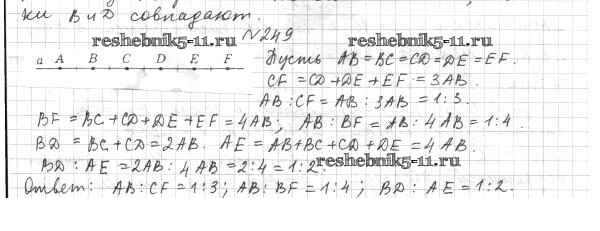 ки В и D совпадают.
reshebnik5-11.ru
№249
a A B C D E F Пусть AB=BC=CD=DE=EF.
CF=CD+DE+EF=3AB.
AB:CF=AB:3AB=1:3.
BF=BC+CD+DE+EF=4AB; AB:BF=AB:4AB=1:4.
BD=BC+CD=2AB. AE=AB+BC+CD+DE=4AB.
BD:AE=2AB:4AB=2:4=1:2. reshebnik5-11.ru
Ответ: AB:CF=1:3; AB:BF=1:4; BD:AE=1:2.